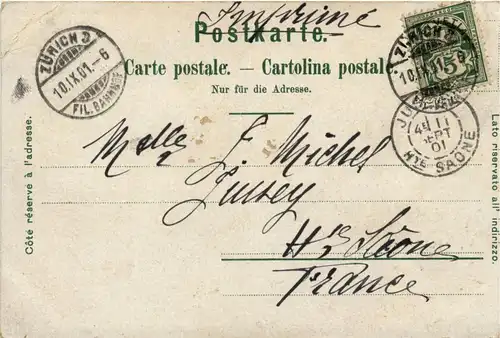 Imprimé
Postkarte.
Carte postale. — Cartolina postale.
Nur für die Adresse.
ZÜRICH
10.IX.01.-6
FIL. BAHNHOF
ZÜRICH
10.IX.01.-6
5
11
SEPT
01
HTE SAÔNE
Côté réservé à l'adresse.
Lato riservato all' indirizzo.
Melle E. Michel
Jussey
Hte Saône
France